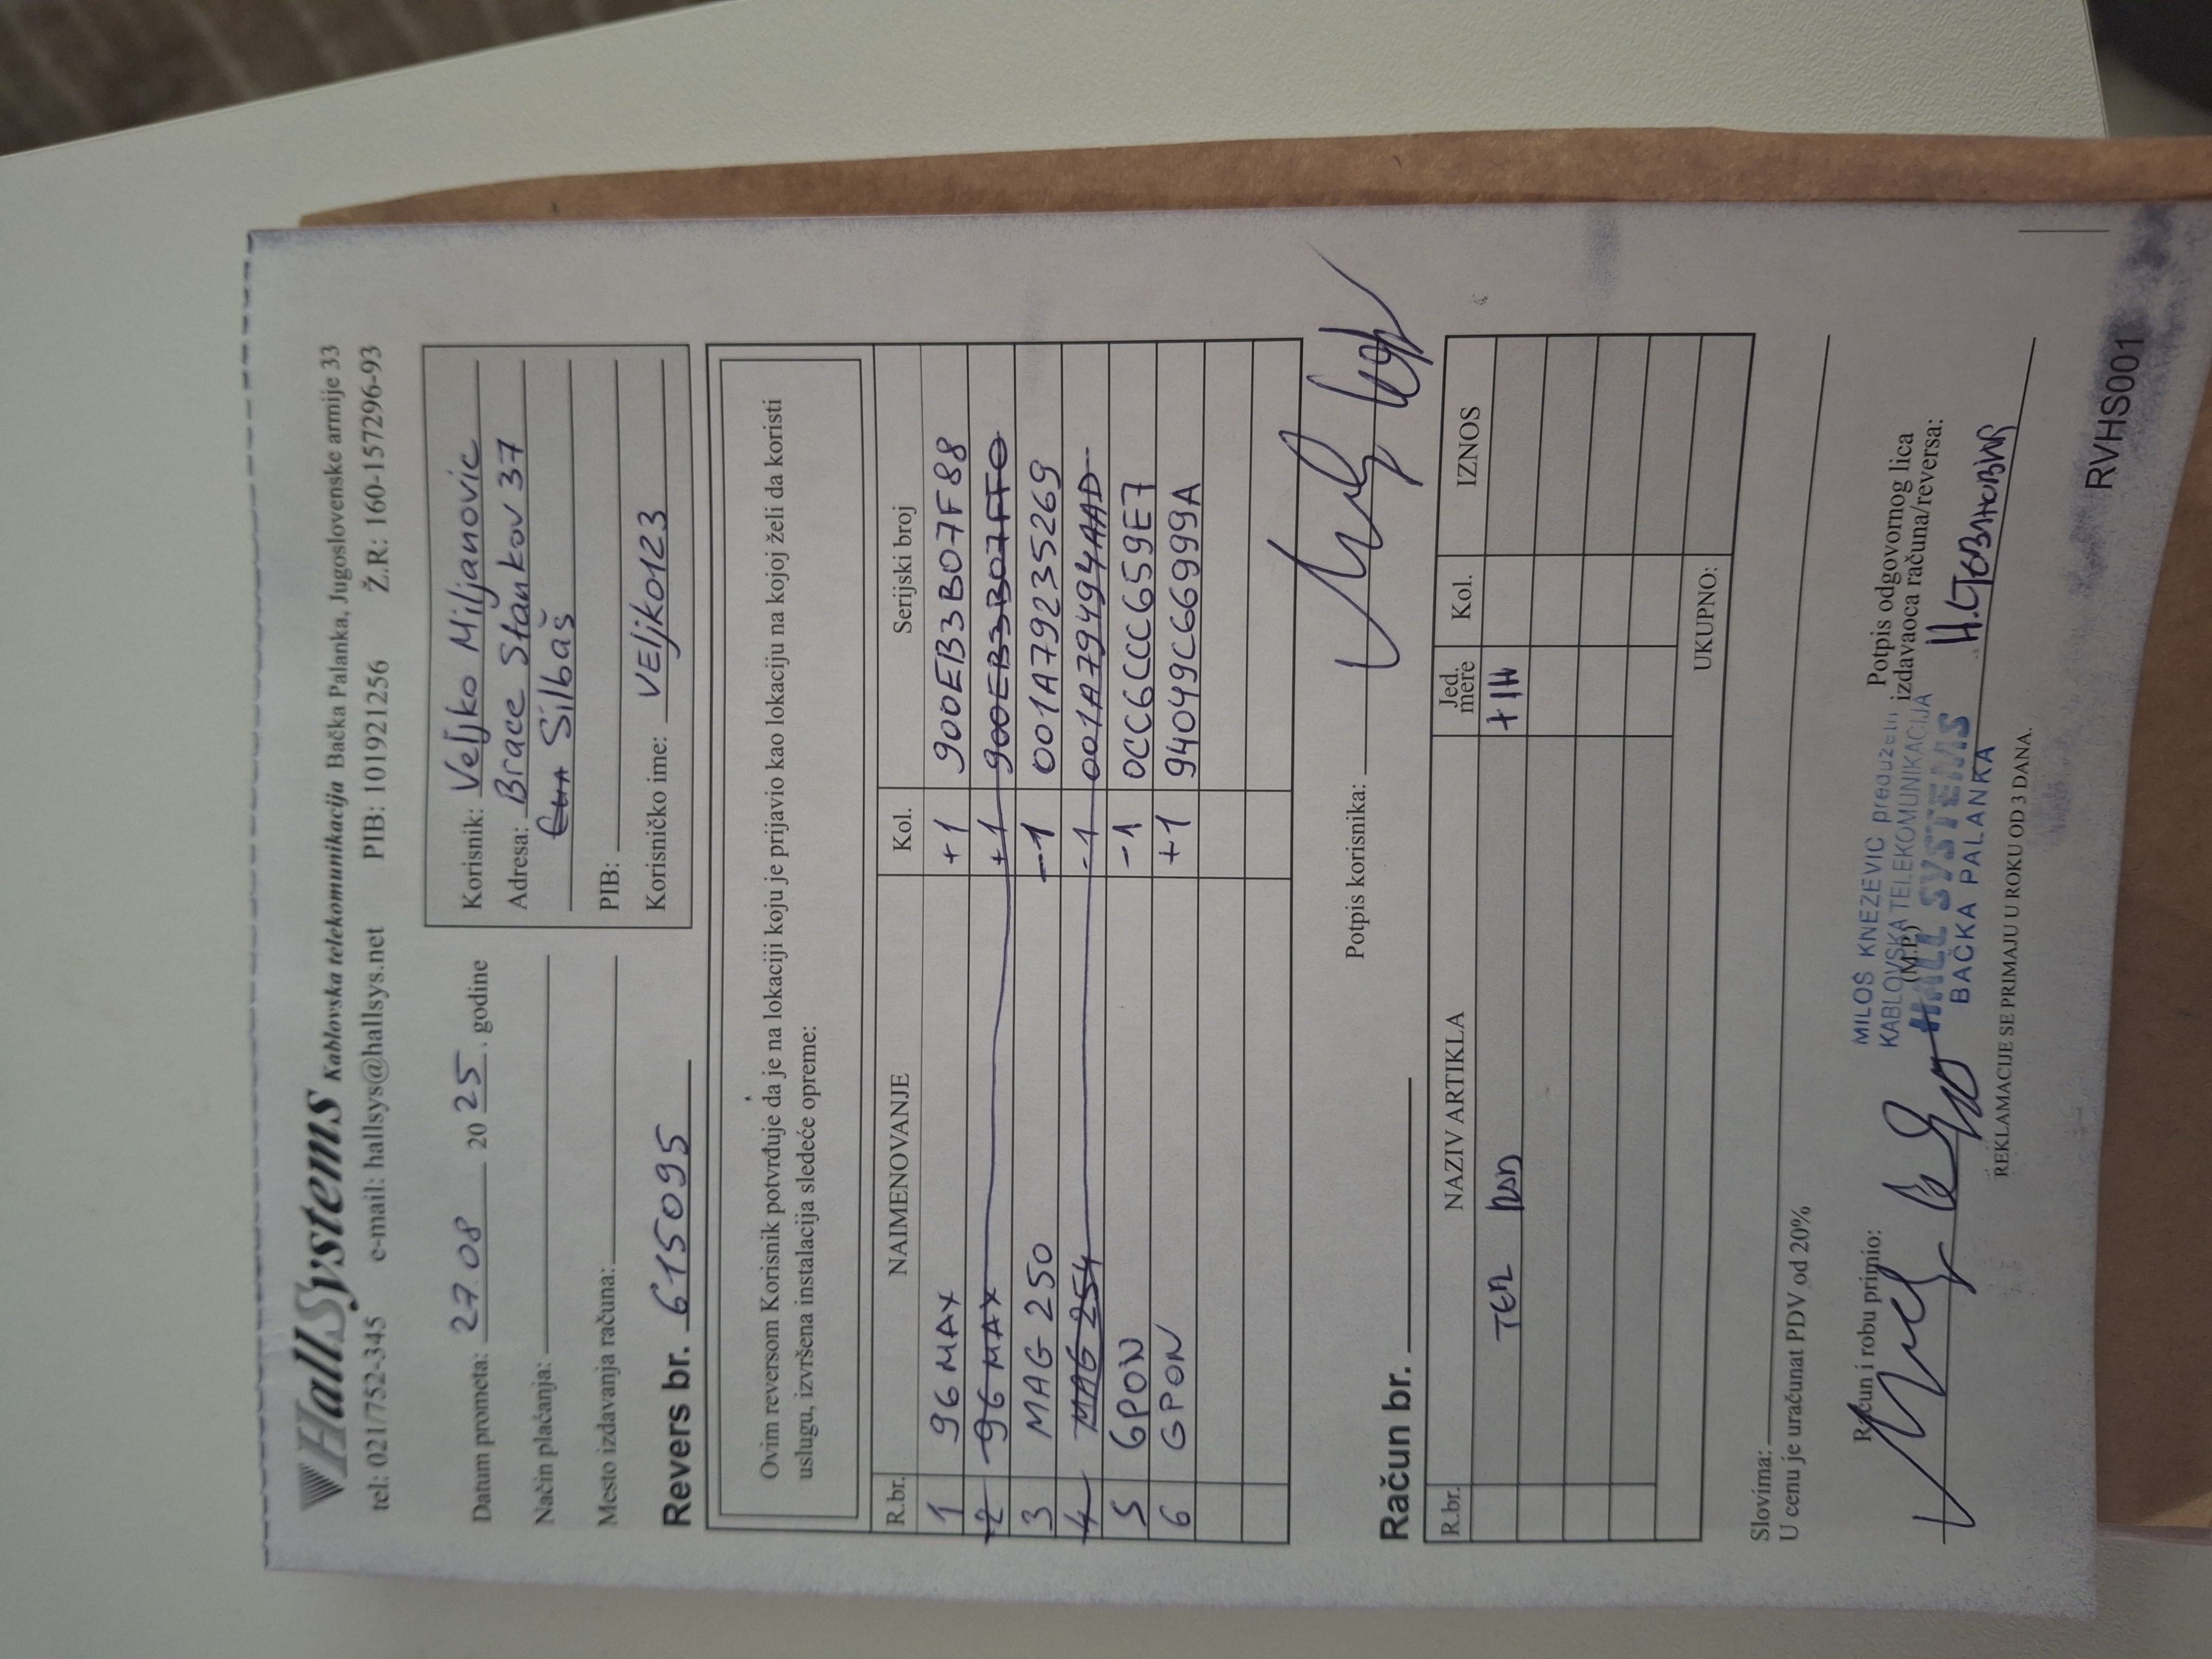 HallSystems Kablovska telekomunikacija Bačka Palanka, Jugoslovenske armije 33
tel: 021/752-345 e-mail: hallsys@hallsys.net PIB: 101921256 Ž.R: 160-157296-93
Datum prometa: 27.08 2025. godine
Način plaćanja:
Mesto izdavanja računa:
Revers br. 615095
Korisnik: Veljko Miljanovic
Adresa: Brace Stankov 37
Silbaš
PIB:
Korisničko ime: VELjko123
Ovim reversom Korisnik potvrđuje da je na lokaciji koju je prijavio kao lokaciju na kojoj želi da koristi
uslugu, izvršena instalacija sledeće opreme:
R.br. NAIMENOVANJE Kol. Serijski broj
1 96MAX +1 900EB3B07F88
2 96MAX +1 900EB3B07FF0
3 MAG 250 -1 001A79235269
4 MAG 254 -1 001A79494AAD
5 GPON -1 0CC6CCC659E7
6 GPON +1 94049C66999A
Potpis korisnika:
Račun br.
R.br. NAZIV ARTIKLA Jed. mere Kol. IZNOS
UKUPNO:
Slovima:
U cenu je uračunat PDV od 20%
Račun i robu primio:
MILOS KNEZEVIC preduzetnik
KABLOVSKA TELEKOMUNIKACIJA
HALL SYSTEMS
BAČKA PALANKA
(M.P.)
Potpis odgovornog lica
izdavaoca računa/reversa:
REKLAMACIJE SE PRIMAJU U ROKU OD 3 DANA.
RVHS001